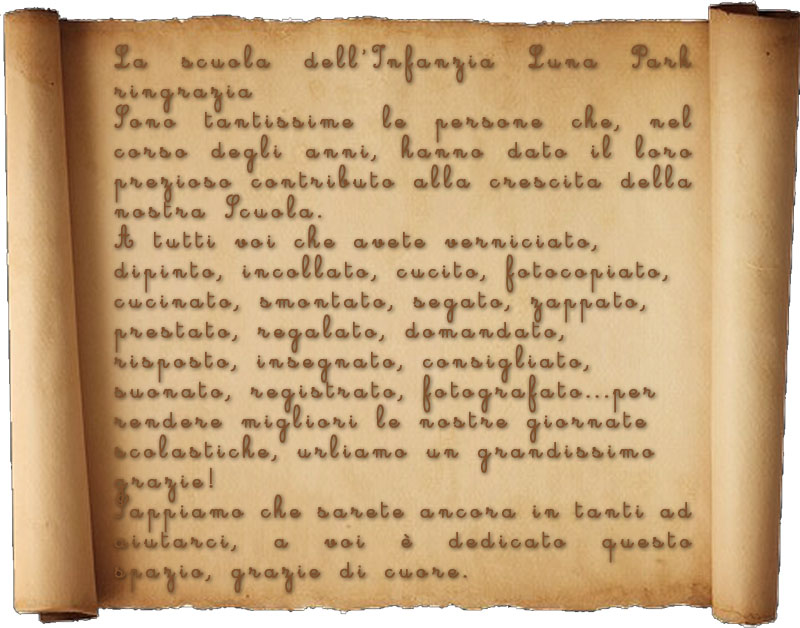 La scuola dell'Infanzia Luna Park
ringrazia
Sono tantissime le persone che, nel
corso degli anni, hanno dato il loro
prezioso contributo alla crescita della
nostra Scuola.
A tutti voi che avete verniciato,
dipinto, incollato, cucito, fotocopiato,
cucinato, smontato, segato, zappato,
prestato, regalato, domandato,
risposto, insegnato, consigliato,
suonato, registrato, fotografato...per
rendere migliori le nostre giornate
scolastiche, urliamo un grandissimo
grazie!
Sappiamo che sarete ancora in tanti ad
aiutarci, a voi è dedicato questo
spazio, grazie di cuore.